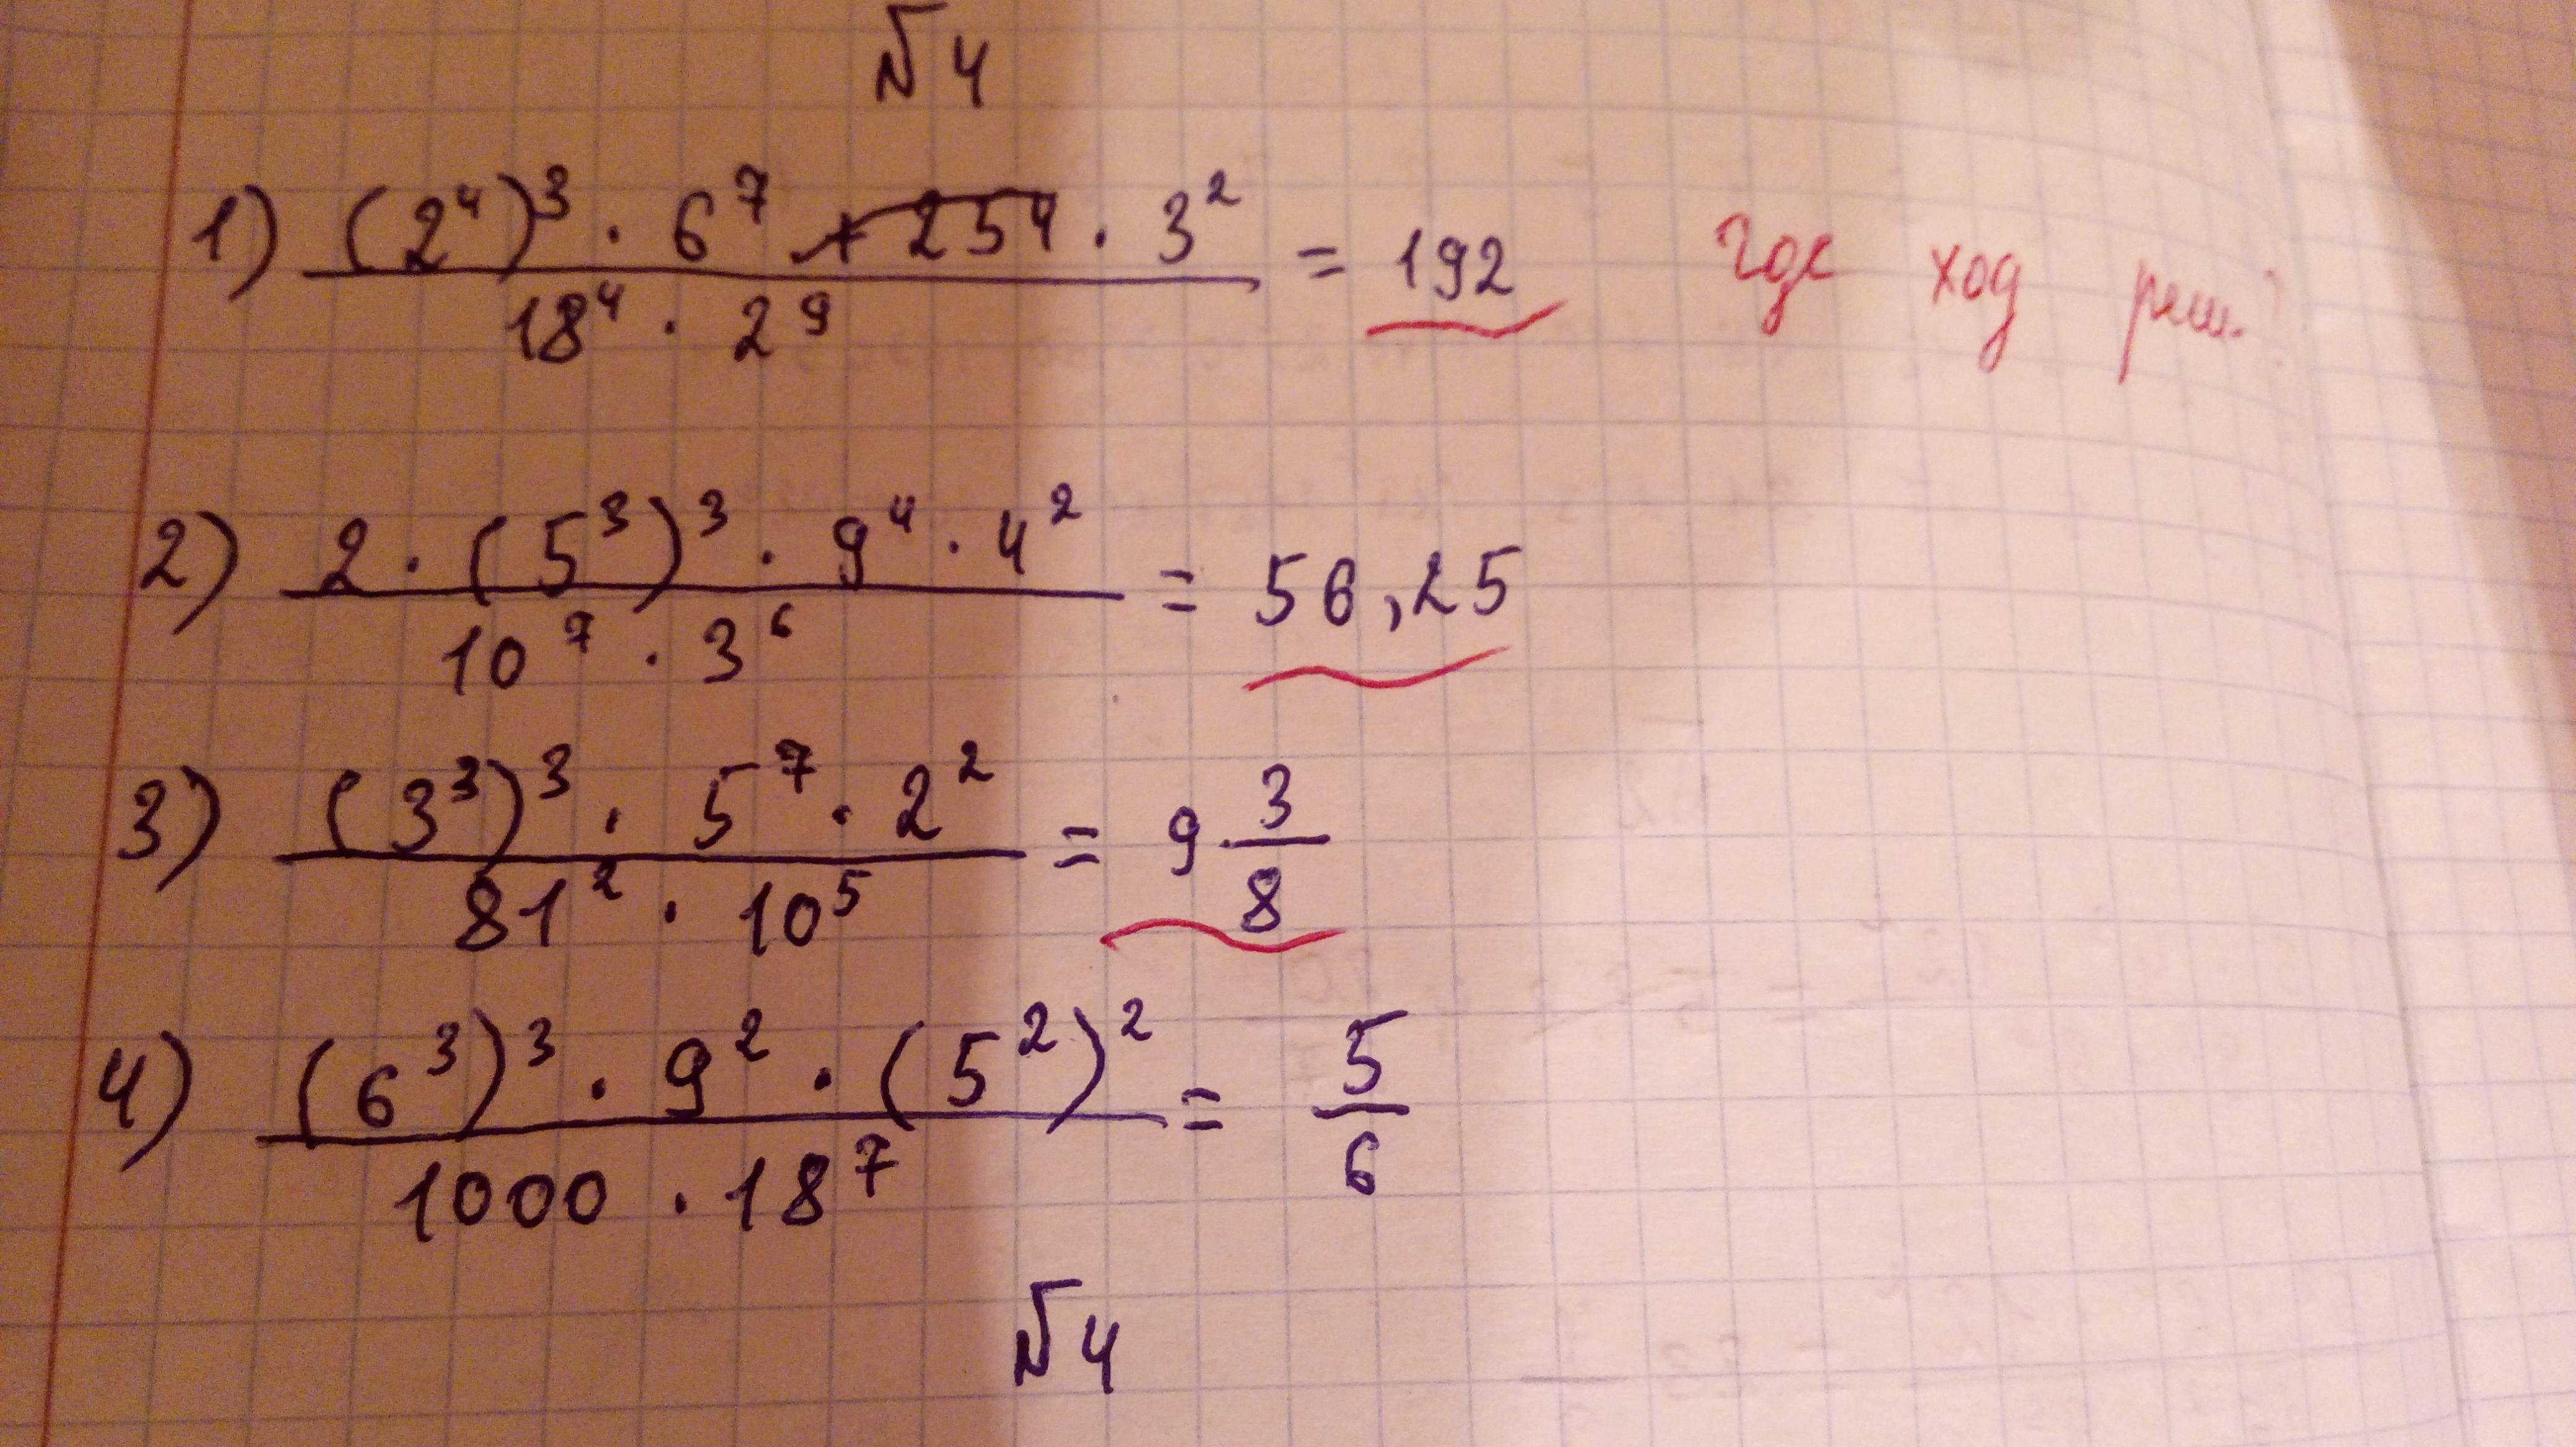 №4
1) ((2⁴)³ · 6⁷ · 3²) / (18⁴ · 2⁹) = 192 Где ход реш.?
2) (2 · (5³)³ · 9⁴ · 4²) / (10⁷ · 3⁶) = 56,25
3) ((3³)³ · 5⁷ · 2²) / (81² · 10⁵) = 9 3/8
4) ((6³)³ · 9² · (5²)²) / (1000 · 18⁷) = 5/6
№4